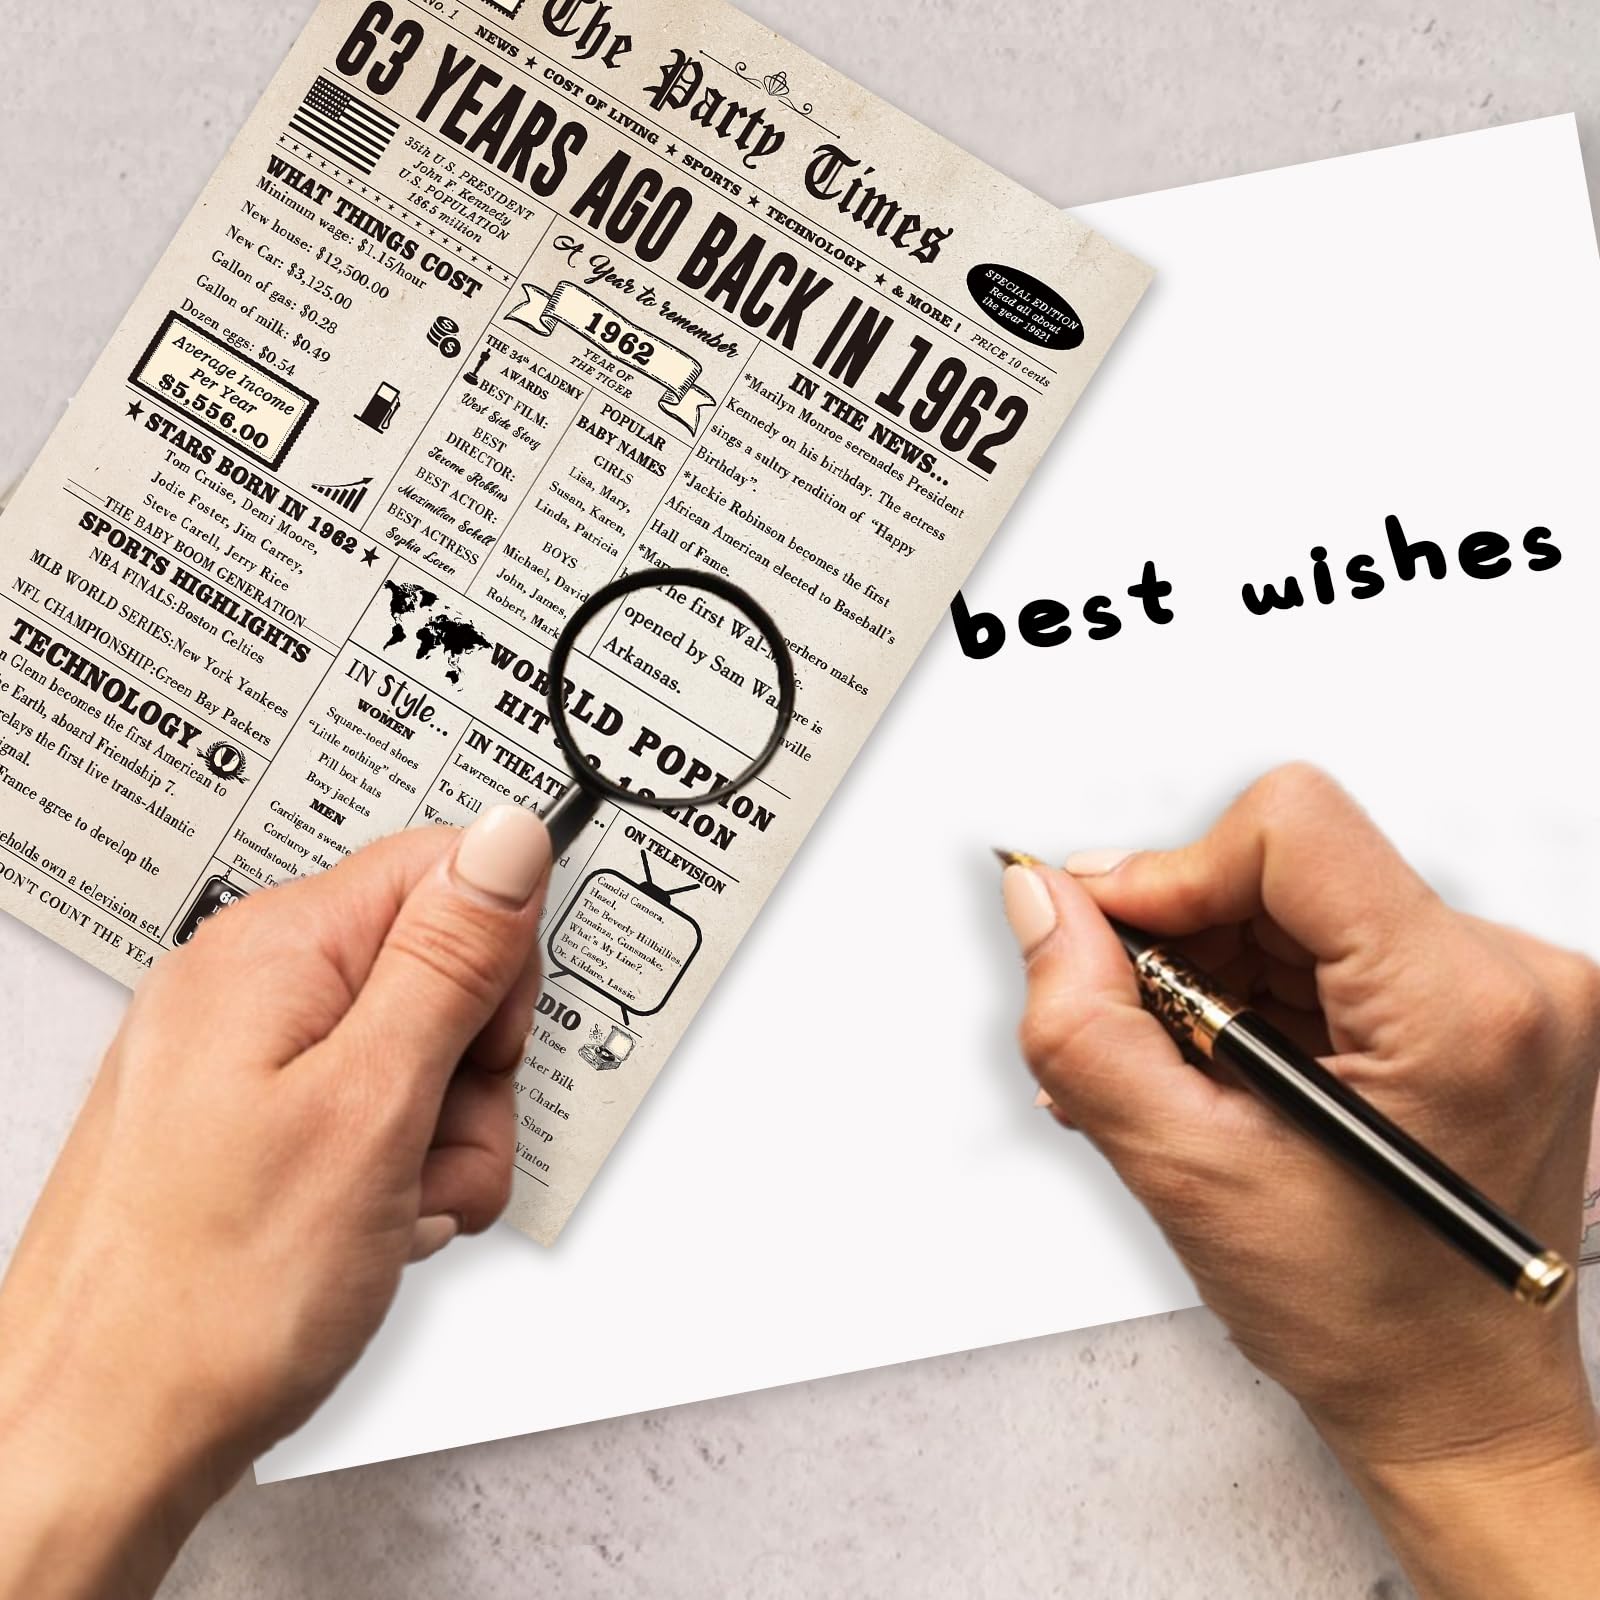 No. 1
The Party Times
NEWS ★ COST OF LIVING ★ SPORTS ★ TECHNOLOGY ★ & MORE!
PRICE 10 cents
SPECIAL EDITION
Read all about
the year 1962!
63 YEARS AGO BACK IN 1962
35th U.S. PRESIDENT
John F. Kennedy
U.S. POPULATION
186.5 million
WHAT THINGS COST
Minimum wage: $1.15/hour
New house: $12,500.00
New Car: $3,125.00
Gallon of gas: $0.28
Gallon of milk: $0.49
Dozen eggs: $0.54
Average Income
Per Year
$5,556.00
★ STARS BORN IN 1962 ★
Tom Cruise, Demi Moore,
Jodie Foster, Jim Carrey,
Steve Carell, Jerry Rice
THE BABY BOOM GENERATION
SPORTS HIGHLIGHTS
NBA FINALS:Boston Celtics
MLB WORLD SERIES:New York Yankees
NFL CHAMPIONSHIP:Green Bay Packers
TECHNOLOGY
Glenn becomes the first American to
Earth, aboard Friendship 7.
relays the first live trans-Atlantic
France agree to develop the
own a television set.
DON'T COUNT THE
A Year to remember
1962
YEAR OF
THE TIGER
THE 34th ACADEMY
AWARDS
BEST FILM:
West Side Story
BEST
DIRECTOR:
Jerome Robbins
BEST ACTOR:
Maximilian Schell
BEST ACTRESS
Sophia Loren
POPULAR
BABY NAMES
GIRLS
Lisa, Mary,
Susan, Karen,
Linda, Patricia
BOYS
Michael, David
John, James,
Robert, Mark
IN THE NEWS...
*Marilyn Monroe serenades President
Kennedy on his birthday. The actress
sings a sultry rendition of "Happy
Birthday".
*Jackie Robinson becomes the first
African American elected to Baseball's
Hall of Fame.
superhero makes
The first Wal-M
opened by Sam Wa
Arkansas.
store is
WORLD POP ION
HIT
LION
IN Style...
WOMEN
Square-toed shoes
"Little nothing" dress
Pill box hats
Boxy jackets
MEN
Cardigan
Corduroy
Houndstooth
Pinch
IN THEAT
Lawrence of
To Kill
ON TELEVISION
Candid Camera,
Hazel,
The Beverly Hillbillies,
Bonanza, Gunsmoke,
What's My Line?,
Ben Casey,
Dr. Kildare, Lassie
DIO
Rose
cker Bilk
ay Charles
Sharp
Vinton
best wishes